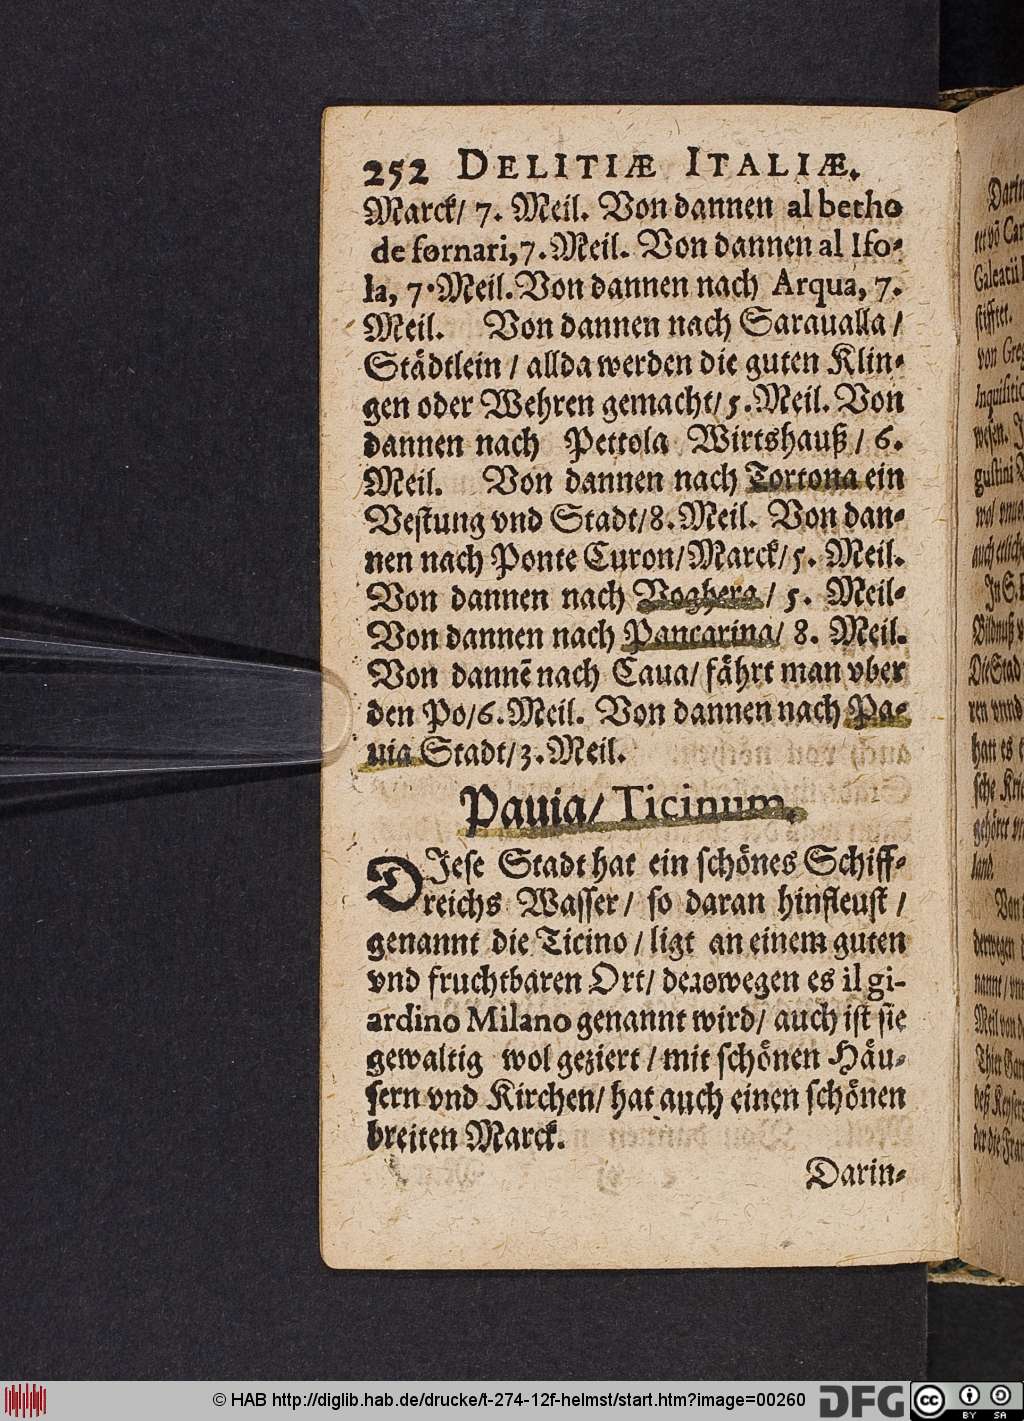 252 DELITIÆ ITALIÆ.
Marck/ 7. Meil. Von dannen al betho
de fornari, 7. Meil. Von dannen al Iſo-
la, 7. Meil. Von dannen nach Arqua, 7.
Meil. Von dannen nach Saraualla /
Städtlein / allda werden die guten Klin-
gen oder Wehren gemacht/ 5. Meil. Von
dannen nach Pettola Wirtshauß / 6.
Meil. Von dannen nach Tortona ein
Veſtung vnd Stadt/ 8. Meil. Von dan-
nen nach Ponte Curon/ Marck/ 5. Meil.
Von dannen nach Voghera / 5. Meil-
Von dannen nach Pancarina/ 8. Meil.
Von dannē nach Caua/ fährt man vber
den Po/ 6. Meil. Von dannen nach Pa-
uia Stadt/ 3. Meil.
Pauia/ Ticinum.
DIeſe Stadt hat ein ſchönes Schiff-
reichs Waſſer / ſo daran hinfleuſt /
genannt die Ticino / ligt an einem guten
vnd fruchtbaren Ort/ derowegen es il gi-
ardino Milano genannt wird/ auch iſt ſie
gewaltig wol geziert / mit ſchönen Häu-
ſern vnd Kirchen/ hat auch einen ſchönen
breiten Marck.
Darin-
© HAB http://diglib.hab.de/drucke/t-274-12f-helmst/start.htm?image=00260
DFG
CC BY SA